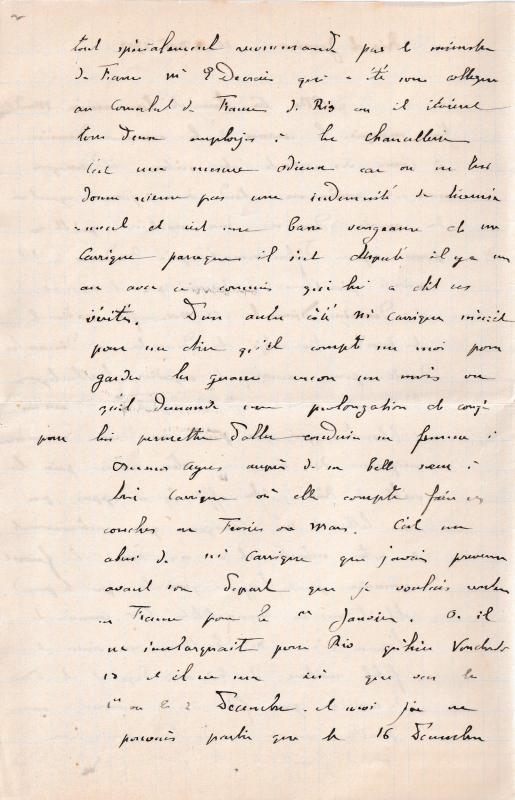 tout spécialement recommandé par le ministre
de France Mr E Decrais qui a été son collègue
au Consulat de France de Rio ou il étaient
tous deux employés à la chancellerie
C'est une mesure odieuse car on ne lui
donne même pas une indemnité de licencie
ment et c'est une basse vengeance de Mr
Carrigue parceque il s'est disputé il y a un
an avec ce commis qui lui a dit ses
vérités. D'un autre côté Mr Carrigue m'écrit
pour me dire qu'il compte sur moi pour
garder la gérance encore un mois ou
qu'il demande une prolongation de congé
pour lui permettre d'aller conduire sa femme à
Buenos Ayres auprès de sa belle soeur à
lui Carrigue où elle compte faire ses
couches en Février ou Mars. C'est un
abus de Mr Carrigue que j'avais prévenu
avant son départ que je voulais rentrer
en France pour le 1er Janvier. Or il
ne s'embarquait pour Rio qu'hier Vendredi
13 et il ne sera ici que vers le
1er ou le 2 Décembre. et moi je ne
pouvais partir que le 16 Décembre